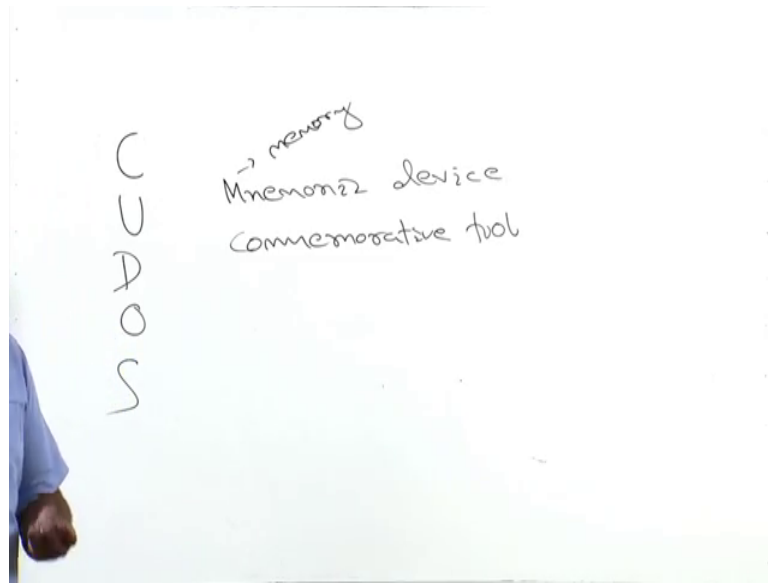 C
U
D
O
S
→ memory
Mnemonic device
Commemorative tool